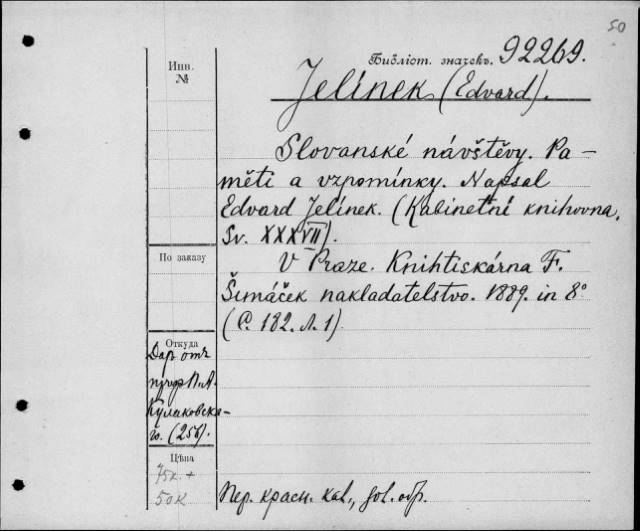 50
Библіот. значекъ. 92269.
Инв.
№
Jelínek (Edvard).
Slovanské návštěvy. Pa-
měti a vzpomínky. Napsal
Edvard Jelínek. (Kabinetní knihovna.
Sv. XXXVII).
По заказу
V Praze. Knihtiskárna F.
Šimáček nakladatelstvo. 1889. in 8°
(C. 182. л. 1)
Откуда
Даръ отъ
П. А.
Кулаковска-
го. (256).
Цѣна
75к. +
50к
Пер. красн. кал.,